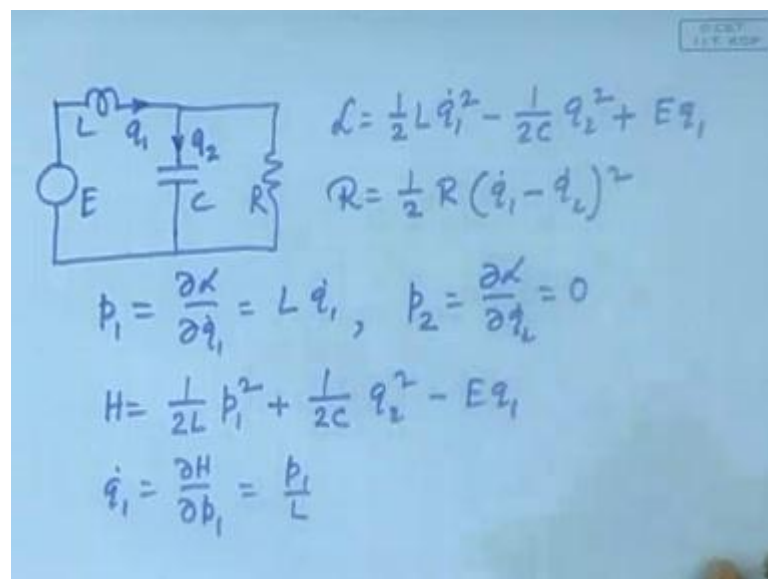 L q̇₁ q̇₂
E C R
ℒ = ½ L q̇₁² − 1/2C q₂² + E q₁
ℛ = ½ R (q̇₁ − q̇₂)²
p₁ = ∂ℒ/∂q̇₁ = L q̇₁, p₂ = ∂ℒ/∂q̇₂ = 0
H = 1/2L p₁² + 1/2C q₂² − E q₁
q̇₁ = ∂H/∂p₁ = p₁/L